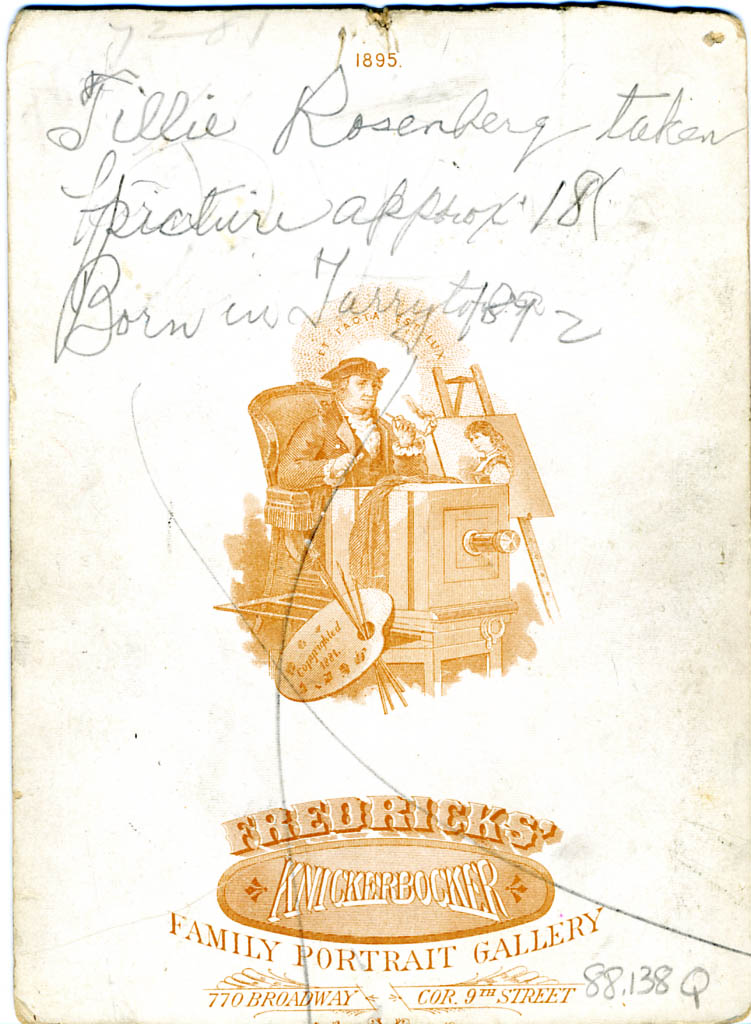 1895.
Tillie Rosenberg taken
picture approx. 18
Born in Tarryto 1892
ET FACTA EST LUX
Copyrighted
1881.
FREDRICKS'
KNICKERBOCKER
FAMILY PORTRAIT GALLERY
770 BROADWAY COR. 9TH STREET
88.138Q